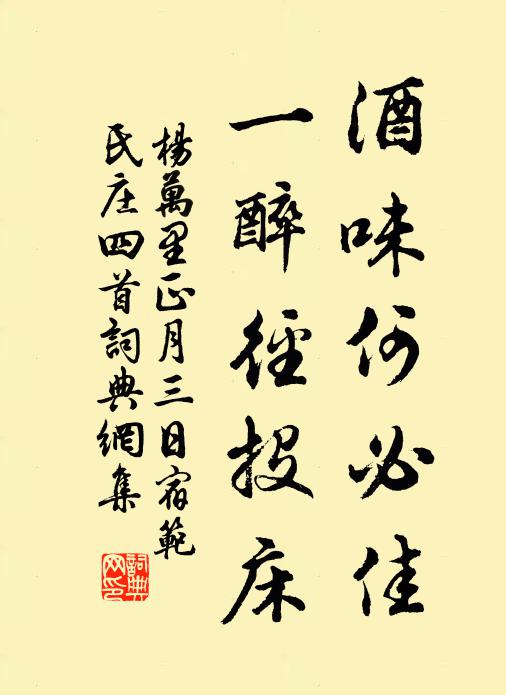 酒味何必佳
一醉徑投床
楊萬里正月三日宿範
氏庄四首詞典網集
詞典
网印